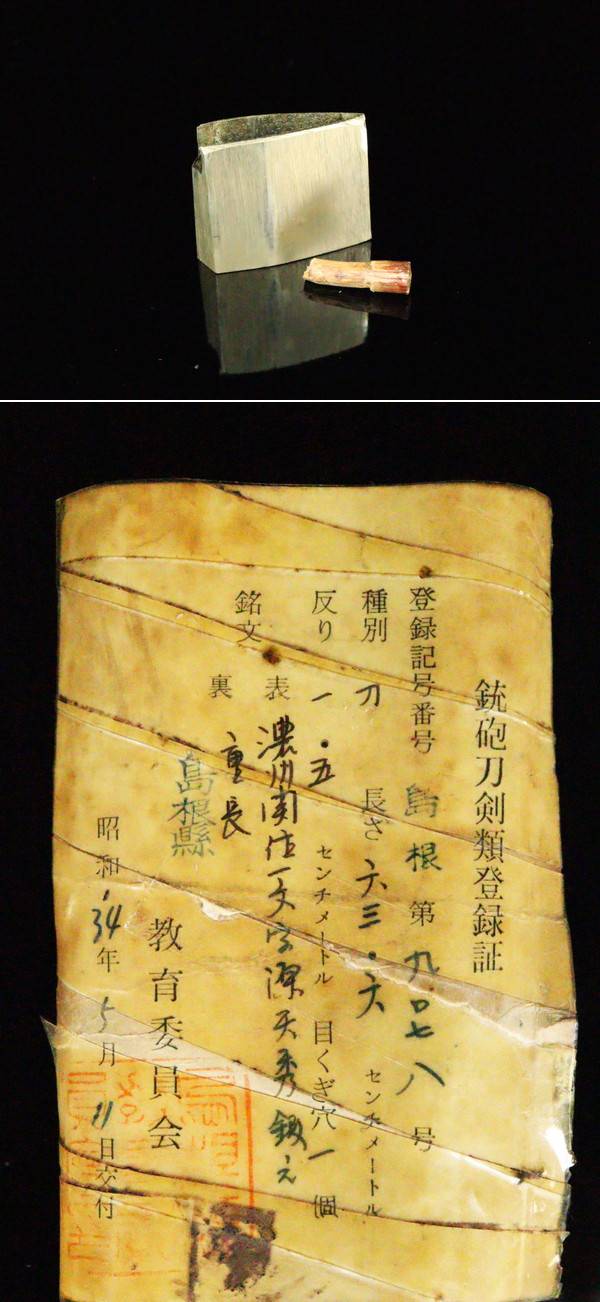 銃砲刀剣類登録証
登録記号番号 島根 第 九〇七八 号
種別 刀 長さ 六三・六 センチメートル
反り 一・五 センチメートル 目くぎ穴 一 個
銘文 表 濃州関住一文字源天秀鍛之
裏 重長
島根縣
教育委員会
昭和 34年 5月 11日交付